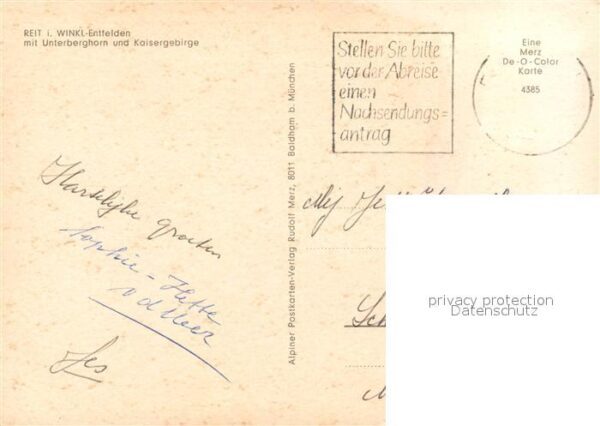 REIT i. WINKL-Entfelden
mit Unterberghorn und Kaisergebirge
Stellen Sie bitte
vor der Abreise
einen
Nachsendungs=
antrag
Eine
Merz
De-O-Color
Karte
4385
Hartelijke groeten
Sophie - Hette
v d Meer
Jes
Alpiner Postkarten-Verlag Rudolf Merz, 8011 Baldham b. München
Mej
privacy protection
Datenschutz